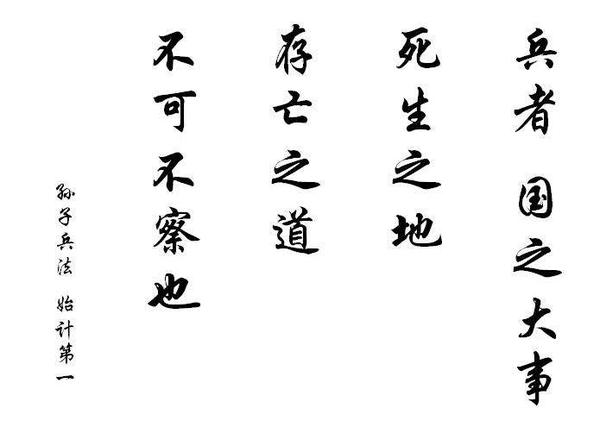 兵者 国之大事
死生之地
存亡之道
不可不察也
孙子兵法 始计第一